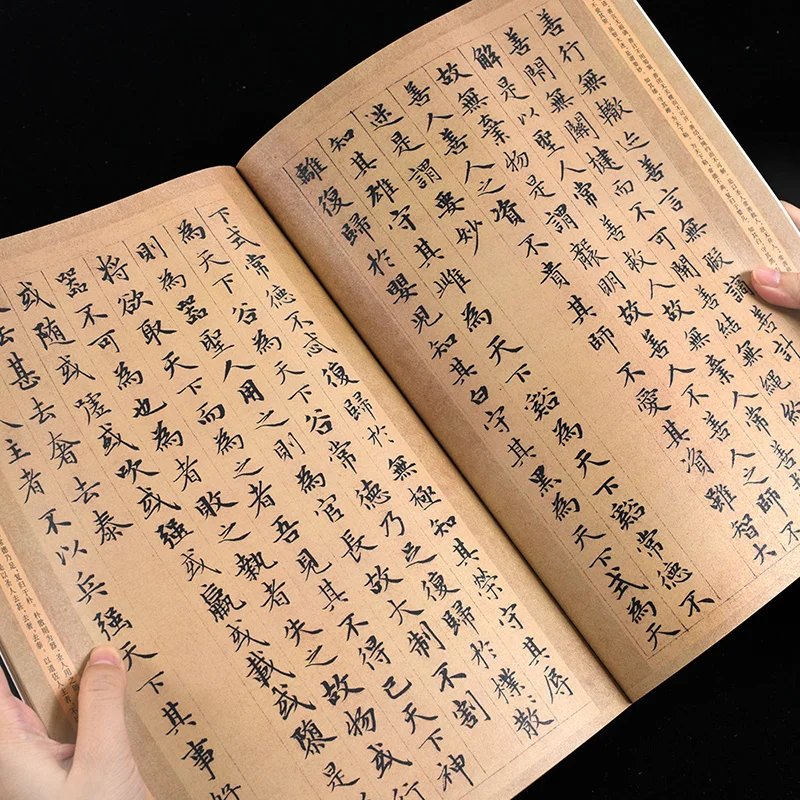 善行無轍迹善言無瑕讁善計
善閉無關楗而不可開善結無繩約
解是以聖人常善救人故無棄人常善
故無棄物是謂襲明故善人不善人之師
善人善人之資不貴其師不愛其資雖智大
迷是謂要妙
知其雄守其雌為天下谿為天下谿常德不
離復歸於嬰兒知其白守其黑為天下式為天
下式常德不忒復歸於無極知其榮守其辱
為天下谷為天下谷常德乃足復歸於樸散
則為器聖人用之則為官長故大制不割
將欲取天下而為之者吾見其不得已天下神
器不可為也為者敗之執者失之故物或行
或随或噓或吹或强或羸或載或隳是
人去甚去奢去泰
人主者不以兵强天下其事好